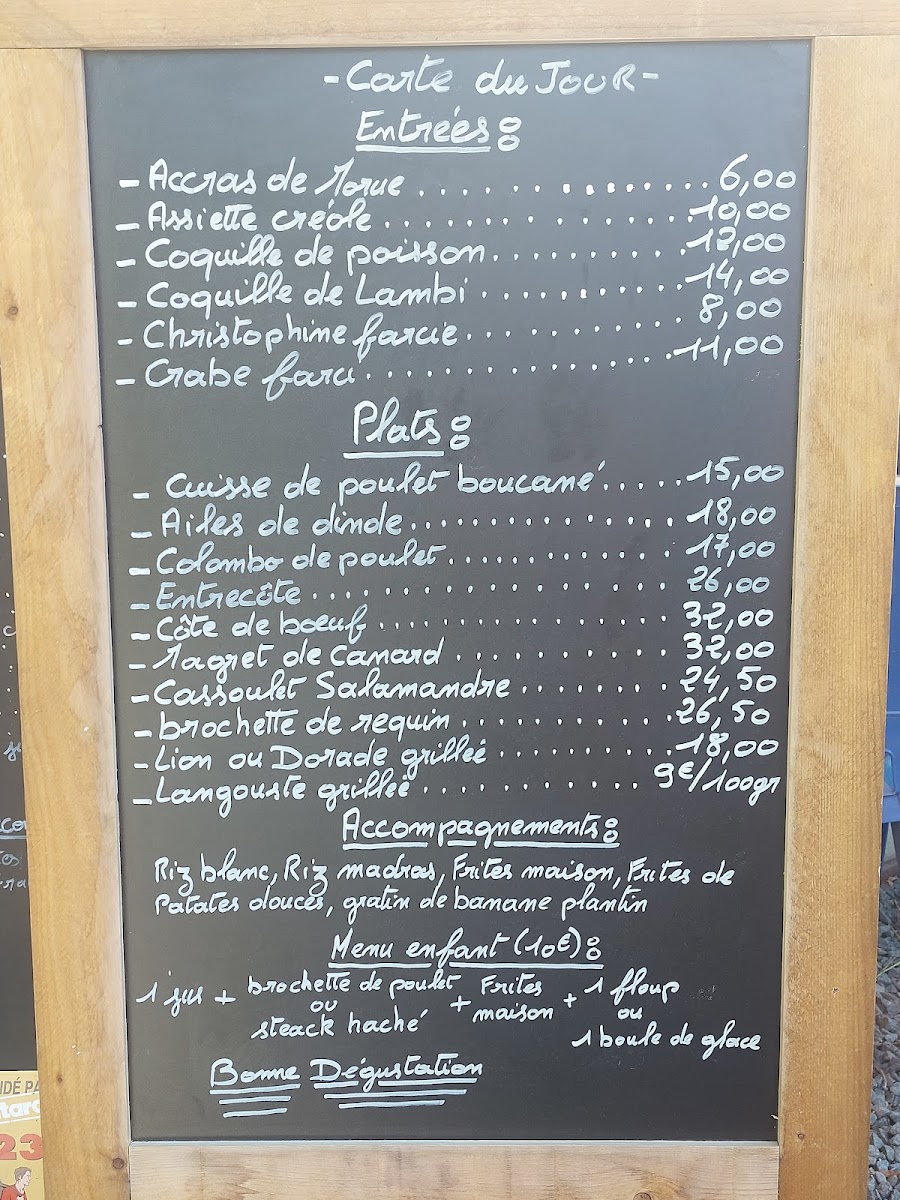 - Carte du JOUR -
Entrées :
- Accras de Morue .................. 6,00
- Assiette créole .................. 10,00
- Coquille de poisson .......... 12,00
- Coquille de Lambi ........... 14,00
- Christophine farcie ........... 8,00
- Crabe farci .................. 11,00
Plats :
- Cuisse de poulet boucané ..... 15,00
- Ailes de dinde .............. 18,00
- Colombo de poulet ............ 17,00
- Entrecôte .................. 26,00
- Côte de boeuf .............. 32,00
- Magret de canard .......... 32,00
- Cassoulet Salamandre ........ 24,50
- brochette de requin .......... 26,50
- Lion ou Dorade grillée .......... 18,00
- Langouste grillée ............ 9€/100gr
Accompagnements :
Riz blanc, Riz madras, Frites maison, Frites de
Patates douces, gratin de banane plantin
Menu enfant (10€) :
1 jus + brochette de poulet ou steack haché + Frites maison + 1 floup ou 1 boule de glace
Bonne Dégustation
IDÉ PA
tard
23